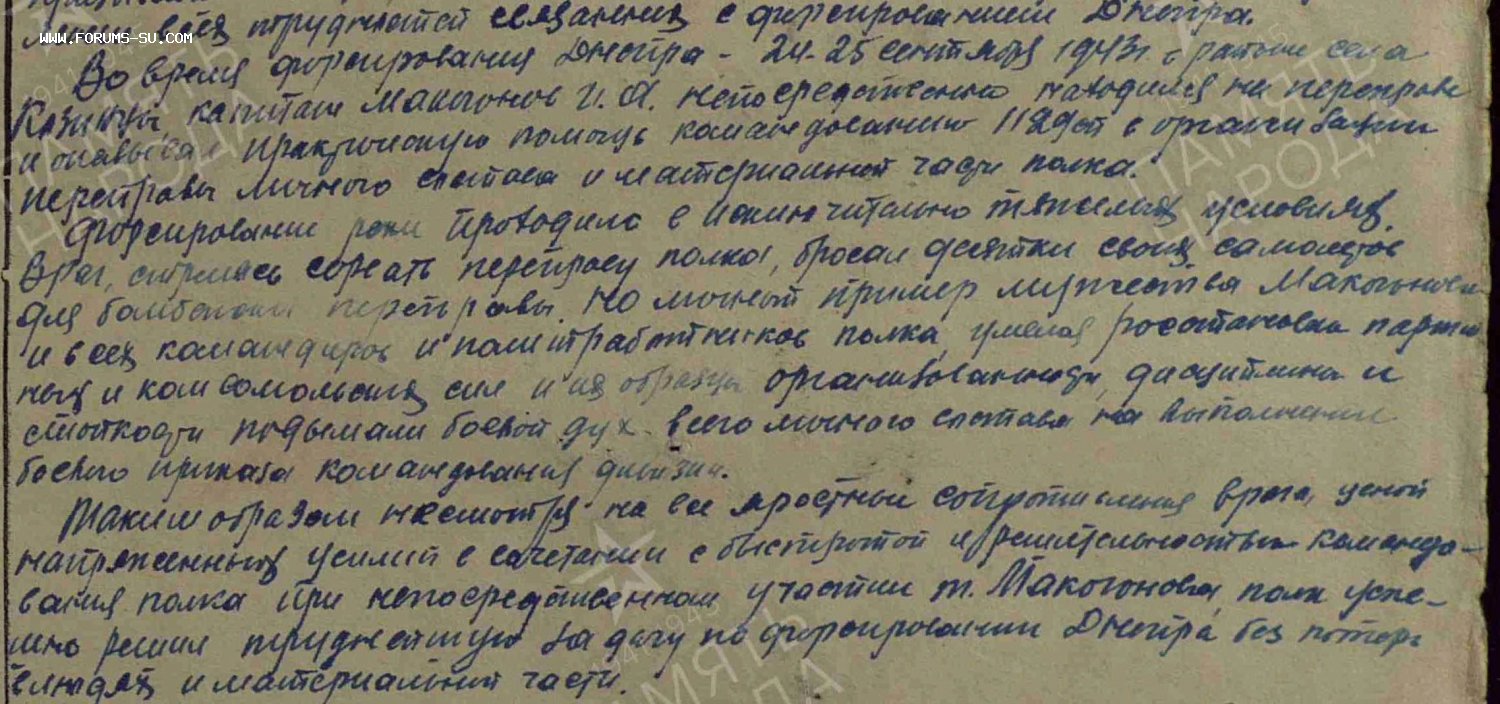 всех трудностей связанных с форсированием Днепра.
www.forums-su.com
Во время форсирования Днепра - 24-25 сентября 1943г. в районе села
Козинцы, капитан Макогонов И.А. непосредственно находился на переправе
и оказывал практическую помощь командованию 118 в организации
переправы личного состава и материальной части полка.
Форсирование реки проходило в исключительно тяжелых условиях.
Враг, стремясь сорвать переправу полка, бросал десятки своих самолетов
для бомбежки переправы. Но личный пример мужества Макогонова
и всех командиров и политработников полка, умелая расстановка партий-
ных и комсомольских сил и их образцы организованности, дисциплины и
стойкости подымали боевой дух всего личного состава на выполнение
боевого приказа командования дивизии.
Таким образом несмотря на все яростные сопротивления врага, ценой
напряженных усилий в сочетании с быстротой и решительностью командо-
вания полка при непосредственном участии т. Макогонова, полк успе-
шно решил труднейшую задачу по форсировании Днепра, без потерь
в людях и материальной части.
ПАМЯТЬ
НАРОДА
1941-1945